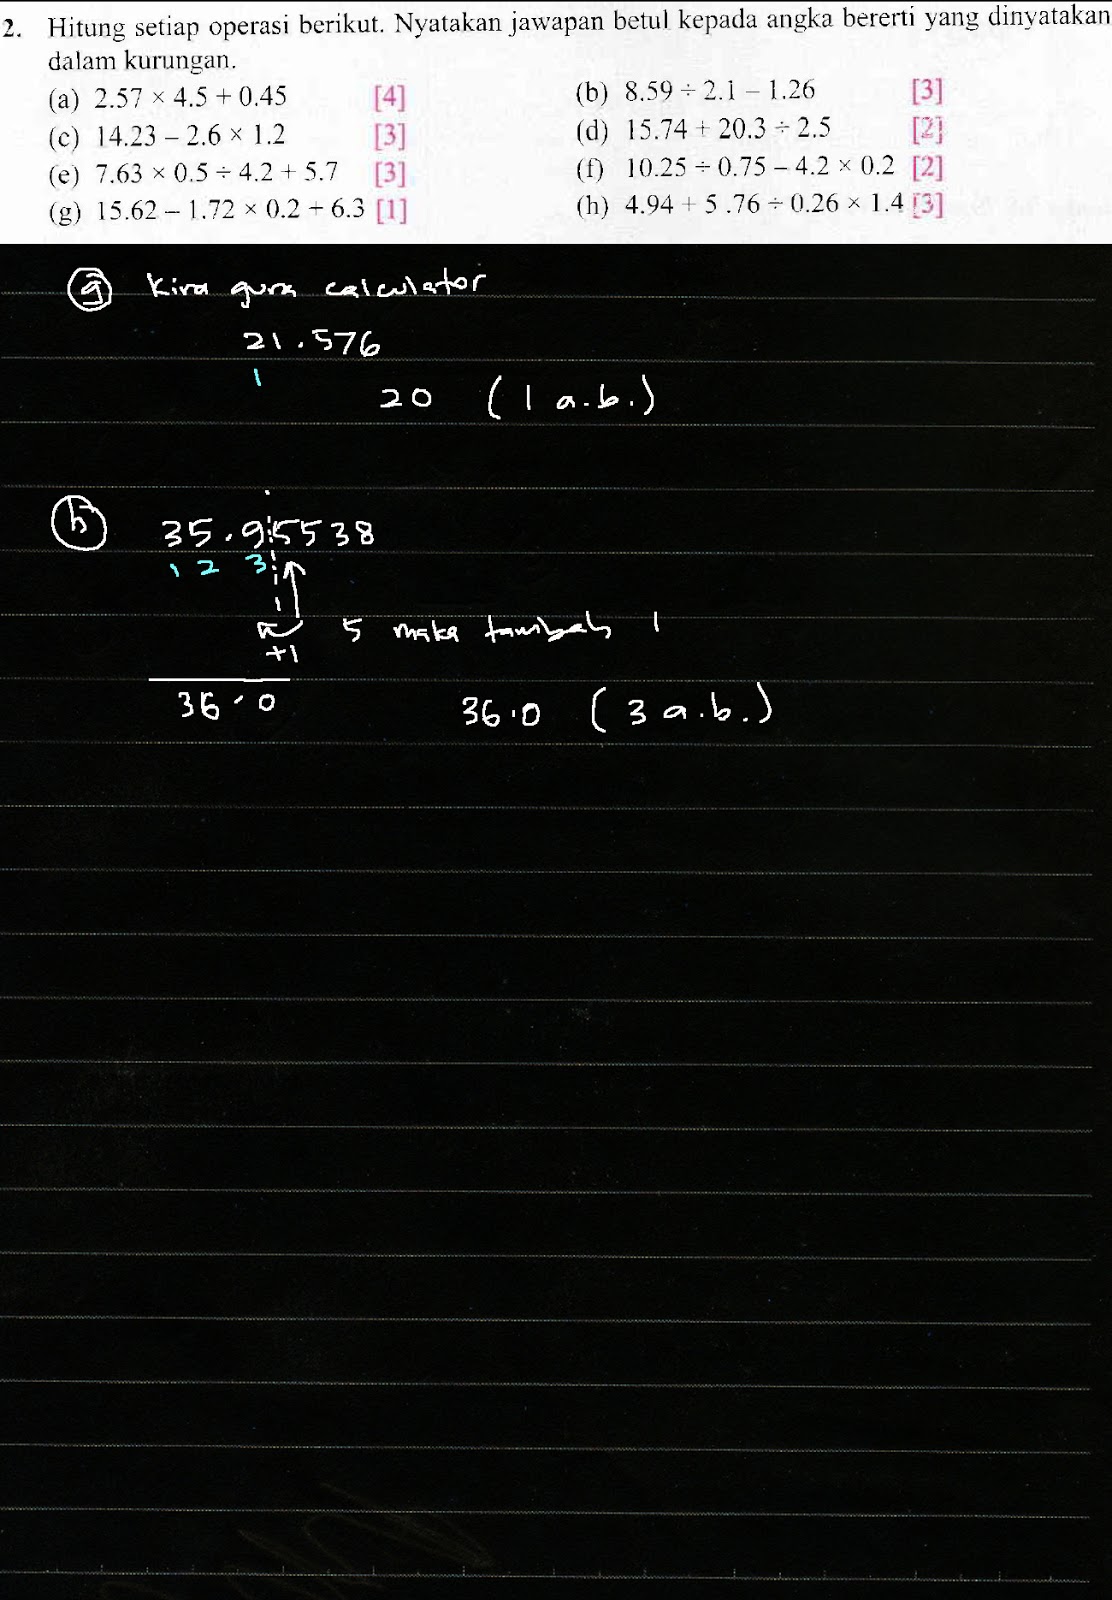 2. Hitung setiap operasi berikut. Nyatakan jawapan betul kepada angka bererti yang dinyatakan
dalam kurungan.
(a) 2.57 × 4.5 + 0.45 [4] (b) 8.59 ÷ 2.1 – 1.26 [3]
(c) 14.23 – 2.6 × 1.2 [3] (d) 15.74 + 20.3 ÷ 2.5 [2]
(e) 7.63 × 0.5 ÷ 4.2 + 5.7 [3] (f) 10.25 ÷ 0.75 – 4.2 × 0.2 [2]
(g) 15.62 – 1.72 × 0.2 + 6.3 [1] (h) 4.94 + 5 .76 ÷ 0.26 × 1.4 [3]
g kira guna calculator
21.576
1
20 (1 a.b.)
h 35.95538
1 2 3
5 maka tambah 1
+1
36.0 36.0 (3 a.b.)